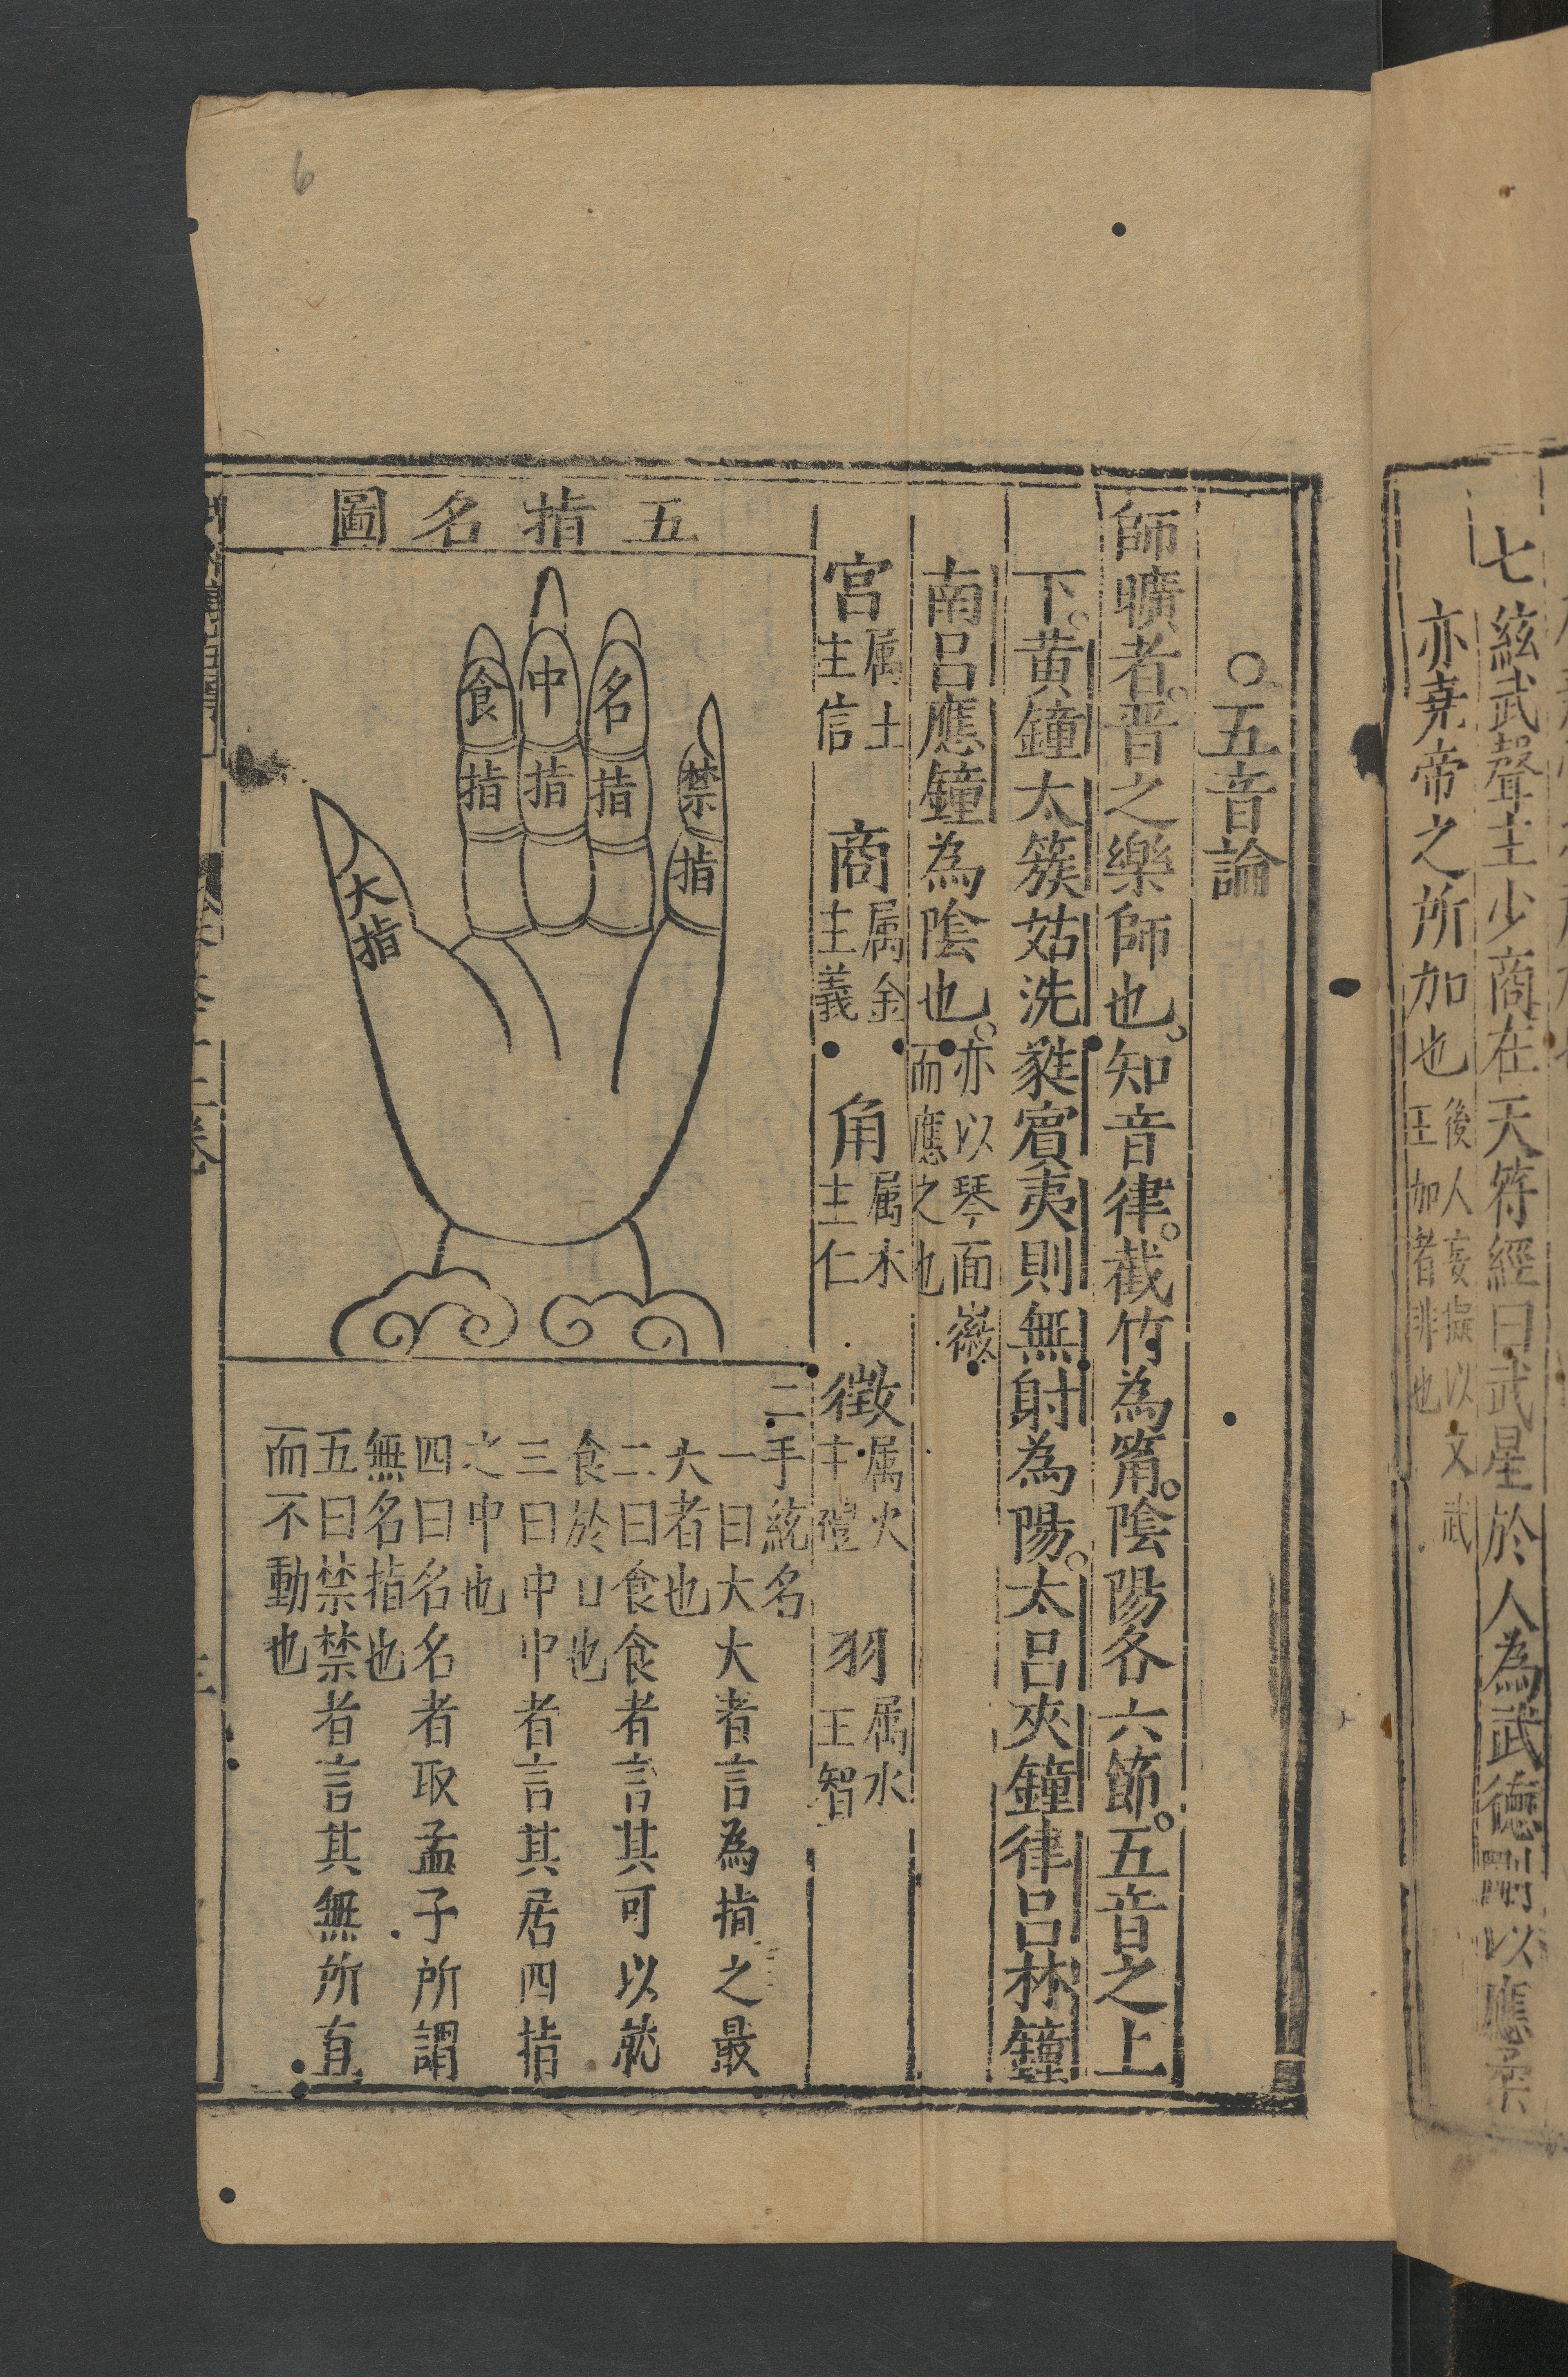 七絃武聲主少商在天符經曰武星於人為武德剛以應柔
亦堯帝之所加也
後人妄擬以文武
王加者非也
○五音論
師曠者。晋之樂師也。知音律。截竹為筩。陰陽各六節。五音之上
下。黄鐘太簇姑洗蕤賓夷則無射為陽。太呂夾鐘律呂林鐘
南呂應鐘為陰也。
亦以琴面徽
而應之也
宮
属土
主信
商
属金
主義
角
属木
主仁
徵
属火
主禮
羽
属水
王智
五指名圖
禁指
名指
中指
食指
大指
二手統名
一曰大大者言為指之最
大者也
二曰食食者言其可以就
食於口也
三曰中中者言其居四指
之中也
四曰名名者取孟子所謂
無名指也
五曰禁禁者言其無所直
而不動也
6